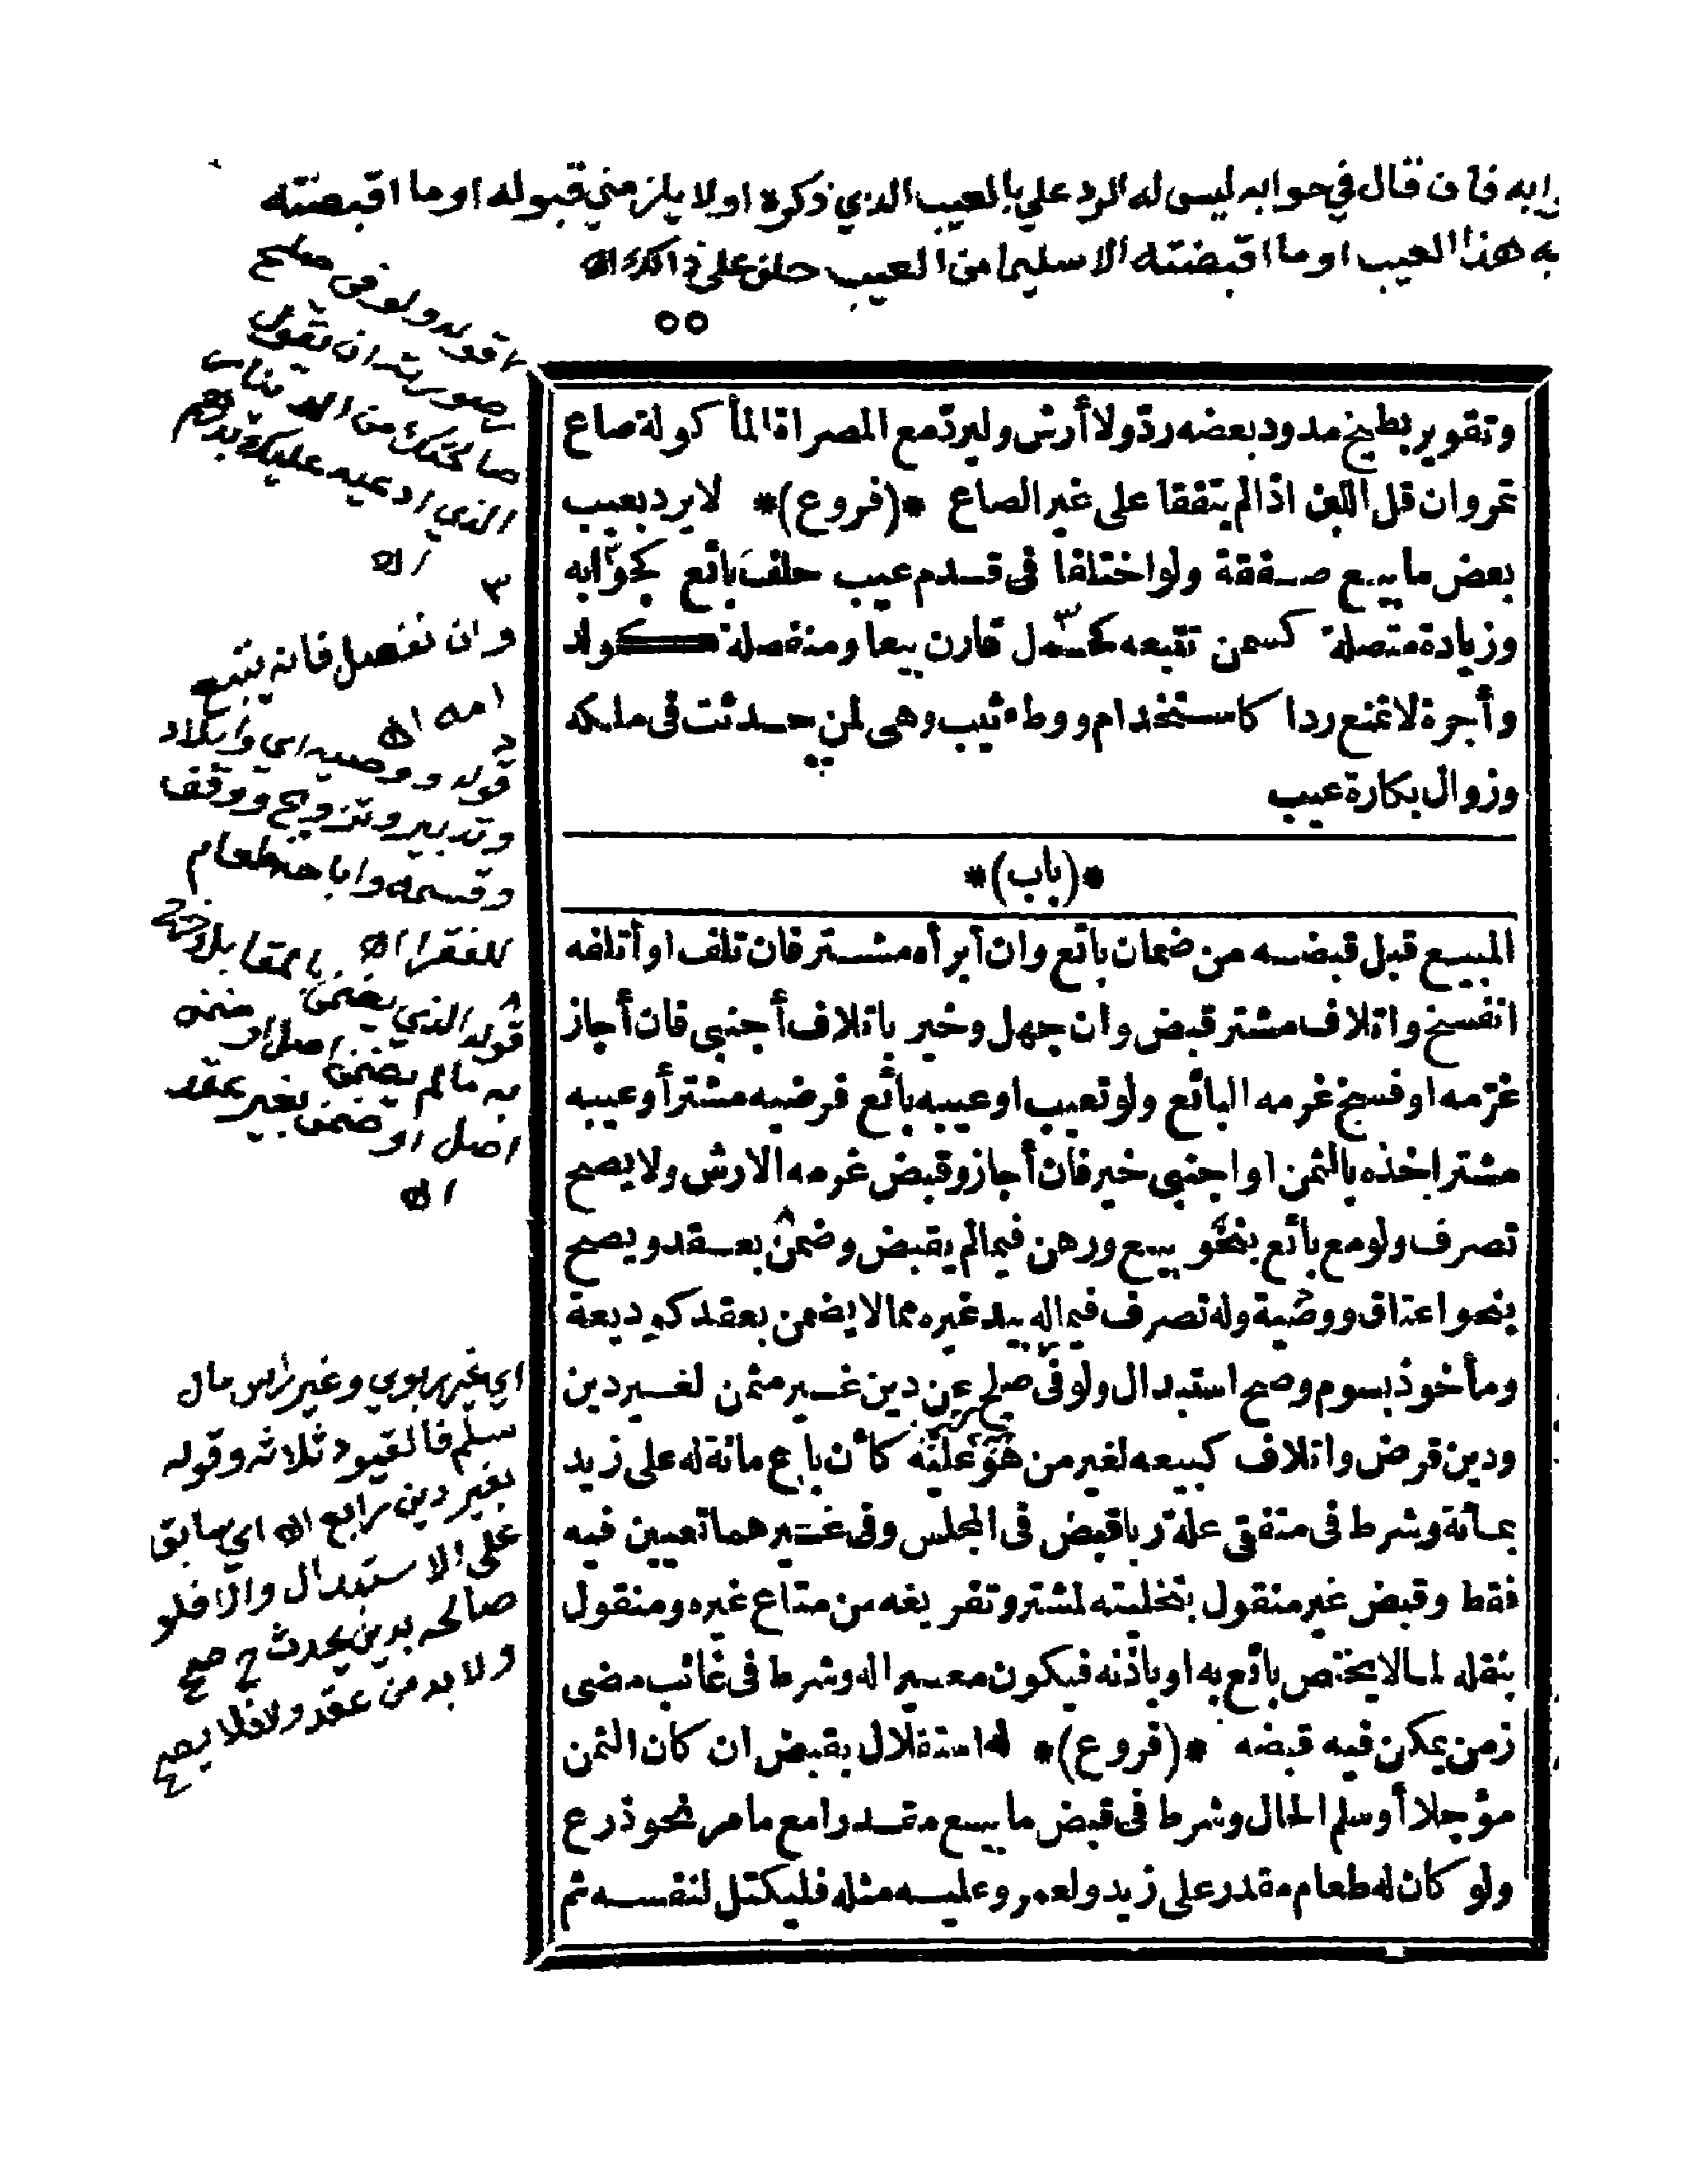 فان قال في جوابه ليس له الرد علي بالعيب الذي ذكره اولا يلزمني قبوله او ما اقبضته
به هذا العيب او ما اقبضته الا سليما من العيب حلف على ذالك اه
وتقوير بطيخ مدود بعضه ردّ ولا أرش وليردّ مع المصراة المأكولة صاع
تمر وان قل اللبن اذا لم يتفقا على غير الصاع *(فروع)* لا يرد بعيب
بعض ما بيع صفقة ولو اختلفا فى قدم عيب حلف بائع كجوابه
وزيادة متصلة كسمن تتبعه كحمل قارن بيعا ومنفصلة كولد
وأجرة لا تمنع ردا كاستخدام ووطء ثيب وهى لمن حدثت فى ملكه
وزوال بكارة عيب
*(باب)*
المبيع قبل قبضه من ضمان بائع وان أبرأه مشتر فان تلف او أتلفه
انفسخ واتلاف مشتر قبض وان جهل وخير باتلاف أجنبى فان أجاز
غرّمه او فسخ غرمه البائع ولو تعيب او عيبه بائع فرضيه مشتر أو عيبه
مشتر اخذه بالثمن او اجنبى خير فان أجاز وقبض غرمه الارش ولا يصح
تصرف ولو مع بائع بنحو بيع ورهن فيما لم يقبض وضمن بعقد ويصح
بنحو اعتاق ووصية وله تصرف فيما له بيد غيره مما لا يضمن بعقد كوديعة
ومأخوذ بسوم وصح استبدال ولو فى صلح عن دين غير مثمن لغير دين
ودين قرض واتلاف كبيعه لغير من هو عليه كأن باع مائة له على زيد
بمائة وشرط فى متفقى علة ربا قبض فى المجلس وفى غيرهما تعيين فيه
فقط وقبض غير منقول بتخليته لمشتر وتفريغه من متاع غيره ومنقول
بنقله لما لا يختص بائع به او باذنه فيكون معيرا له وشرط فى غائب مضى
زمن يمكن فيه قبضه *(فروع)* له استقلال بقبض ان كان الثمن
مؤجلا أو سلم الحال وشرط فى قبض ما بيع مقدرا مع ما مر نحو ذرع
ولو كان له طعام مقدر على زيد ولعمرو عليه مثله فليكتل لنفسه ثم
قوله ولو في صلح
صورته ان تقول
صالحتك من
الذي ادعيه عليك بدرهم
اه
٣
وان نفصل فانه يتبع
امه اه
قوله ووصيه اي وايلاد
وتدبير وتزويج ووقف
وقسمه واباحة طعام
للفقرا اه
قوله الذي يضمن
به ما لم يضمن
اصل او ضمن بغير عقد
اه
اي غير ربوي وغير راس مال
سلم فالقيود ثلاثه وقوله
بغير دين رابع اه اي سابق
على الاستبدال والا فلو
صالحه بدين يحدث ح صح
ولا بد من عقد والا فلا يصح